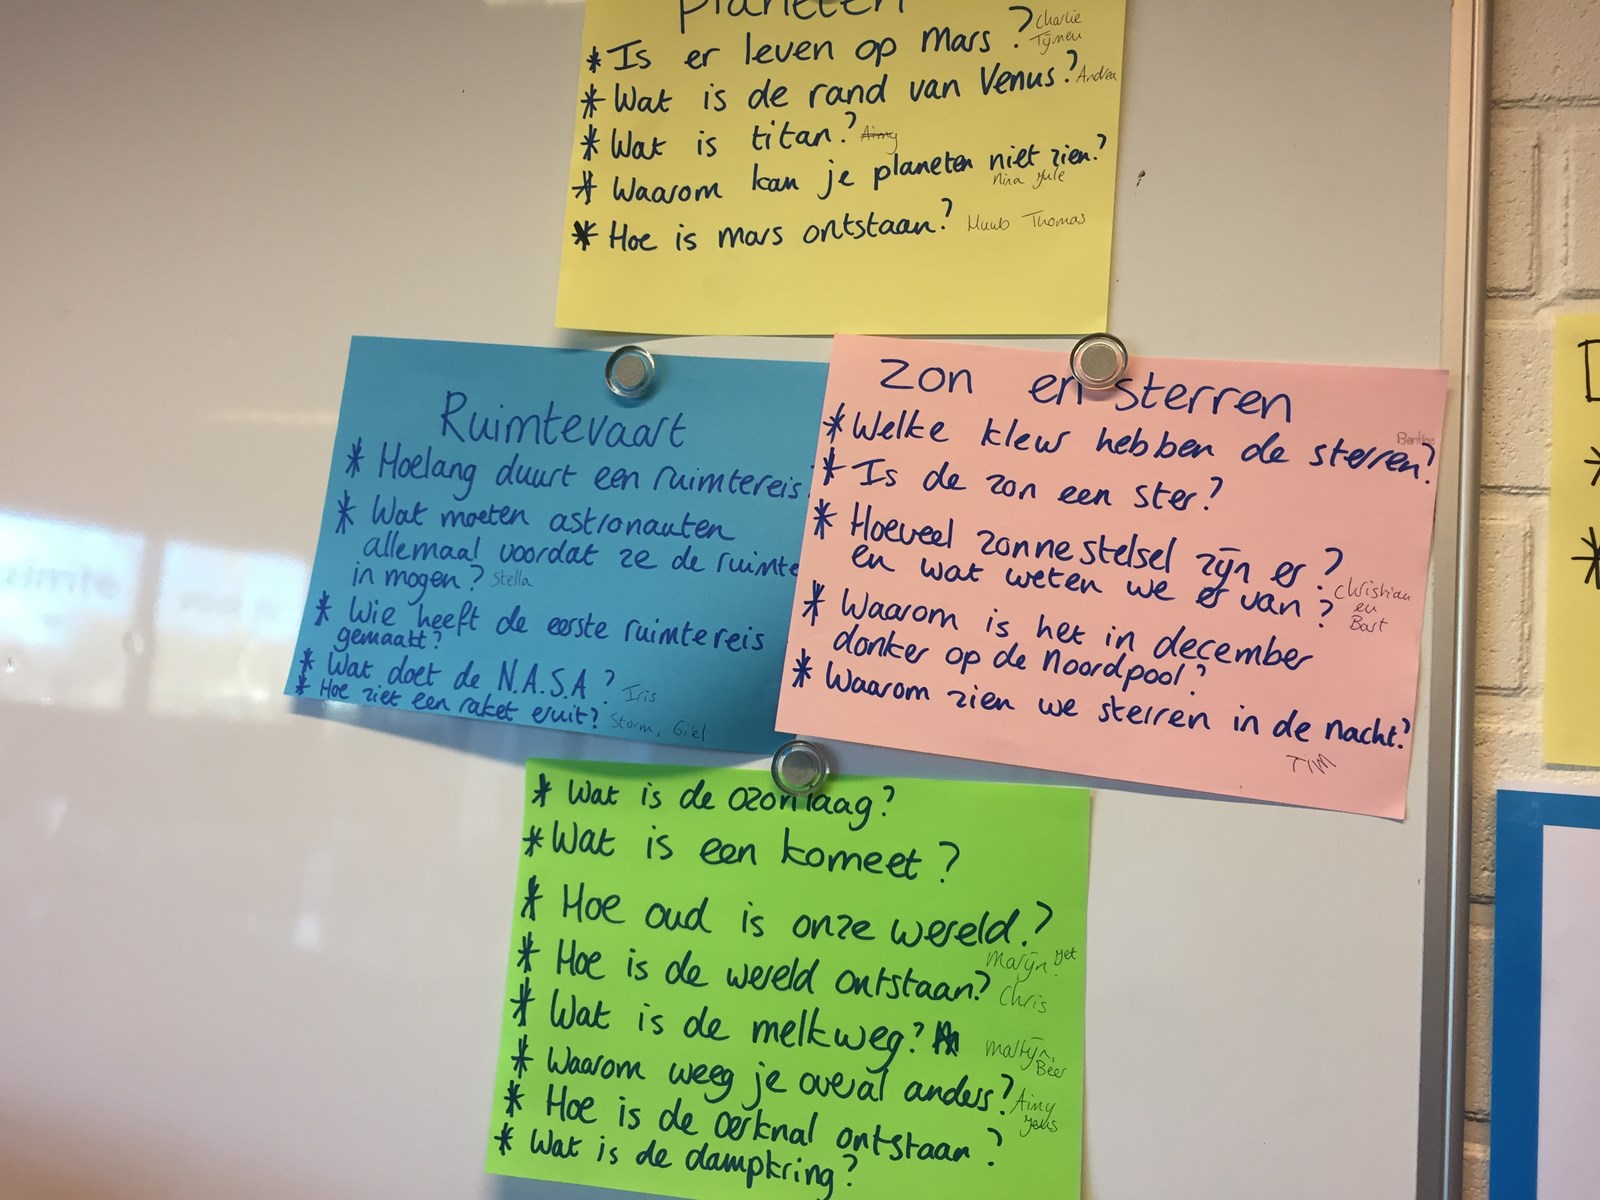 planeten
* Is er leven op Mars? Charlie Tijmen
* Wat is de rand van Venus? Andrea
* Wat is titan? Aimy
* Waarom kan je planeten niet zien?
Nina Jule
* Hoe is mars ontstaan? Huub Thomas
Ruimtevaart
* Hoelang duurt een ruimtereis
* Wat moeten astronauten
allemaal voordat ze de ruimte
in mogen? Stella
* Wie heeft de eerste ruimtereis
gemaakt?
* Wat doet de N.A.S.A? Iris
* Hoe ziet een raket eruit? Storm, Giel
Zon en sterren
* Welke kleur hebben de sterren?
* Is de zon een ster?
* Hoeveel zonnestelsel zijn er?
en wat weten we er van? Christian
en
Bart
* Waarom is het in december
donker op de Noordpool?
* Waarom zien we sterren in de nacht?
TIM
* Wat is de ozonlaag?
* Wat is een komeet?
* Hoe oud is onze wereld?
Marijn Jet
* Hoe is de wereld ontstaan? Chris
* Wat is de melkweg? Martijn,
Beer
* Waarom weeg je overal anders? Aimy
* Hoe is de oerknal ontstaan?
* Wat is de dampkring?